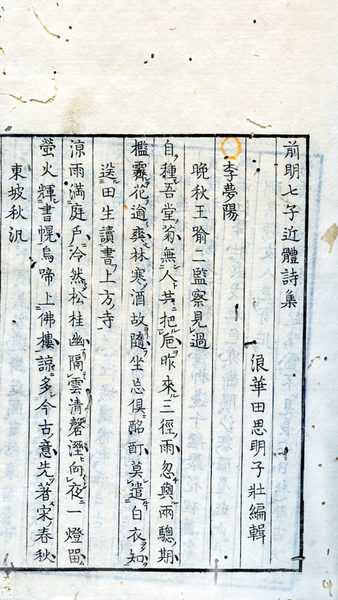 前明七子近體詩集
浪華田思明子壯編輯
李夢陽
晚秋王喻二監察見過
自種吾堂菊無人共把巵昨來三徑雨忽與兩驄期
檻霽花逾爽林寒酒故隨坐忘俱酩酊莫遣白衣知
送田生讀書上方寺
涼雨滿庭戶冷然松桂幽隔雲清磬溼向夜一燈留
螢火輝書幌烏啼上佛樓諒多今古意先著宋春秋
東坡秋汎